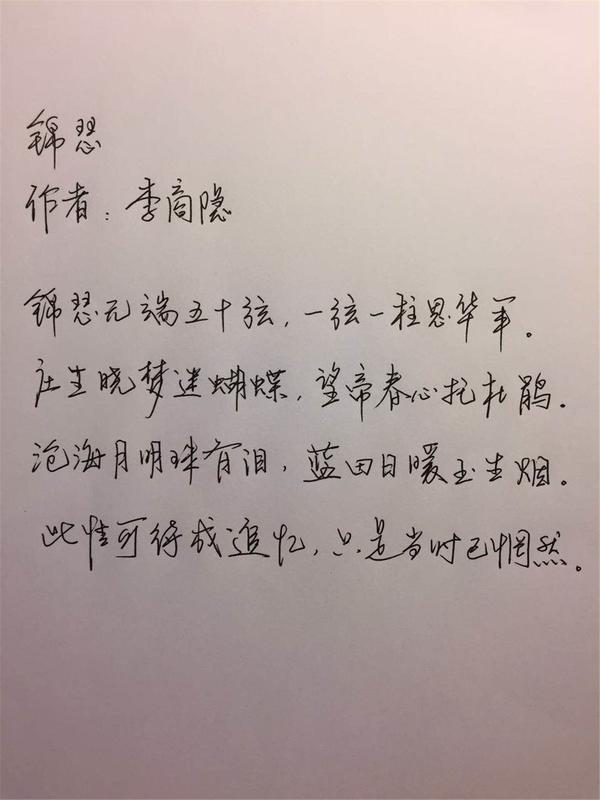 锦瑟
作者：李商隐
锦瑟无端五十弦，一弦一柱思华年。
庄生晓梦迷蝴蝶，望帝春心托杜鹃。
沧海月明珠有泪，蓝田日暖玉生烟。
此情可待成追忆，只是当时已惘然。